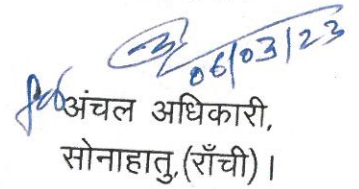 06/03/23
अंचल अधिकारी,
सोनाहातु,(राँची)।